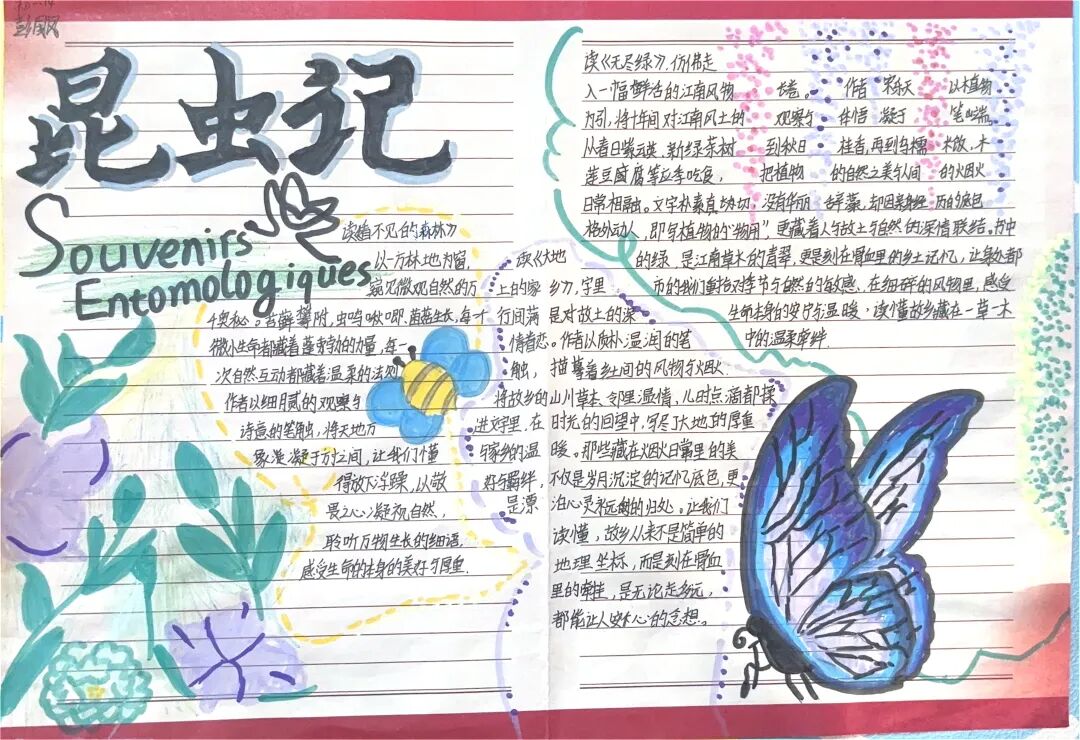 昆虫记
Souvenirs
Entomologiques
读《看不见的森林》
以一方林地为窗,
窥见微观自然的万
千奥秘。苔藓攀附,虫鸣啾唧,菌菇生长,每一个
微小生命都藏着蓬勃的力量,每一
次自然互动都藏着温柔的法则
作者以细腻的观察与
诗意的笔触,将天地万
象凝于方寸之间,让我们懂
得放下浮躁,以敬
畏之心凝视自然,
聆听万物生长的细语,
感受生命的本身的美好与厚重.
读《大地
上的家乡》,字里
行间满是对故土的深
情眷恋。作者以质朴温润的笔
触,描摹着乡间的风物与烟火.
将故乡的山川草木、邻里温情,儿时点滴都揉
进文字里.在时光的回望中,写尽大地的厚重
与家乡的温暖。那些藏在烟火日常里的美
好与羁绊,不仅是岁月沉淀的记忆底色,更
是漂泊心灵永远的归处。让我们
读懂,故乡从来不是简单的
地理坐标,而是刻在骨血
里的牵挂,是无论走多远,
都能让人安心的念想。
读《无尽绿》,仿佛走
入一幅鲜活的江南风物长卷。作者宋乐天以植物
为引,将十年间对江南风土的观察与体悟凝于笔端
从春日紫云英、新绿茶树到秋日桂香,再到乌糯米饭、木
莲豆腐等应季吃食,把植物的自然之美与人间的烟火
日常相融。文字朴素真切,没有华丽辞藻,却因亲身经历的底色
格外动人,即写植物的“物用”,更藏着人与故土与自然的深情联结。书中
的绿,是江南草木的青翠,更是刻在骨血里的乡土记忆,让身处都
市的我们重拾对季节与自然的敏感、在细碎的风物里,感受
生命本身的安宁与温暖,读懂故乡藏在一草一木
中的温柔牵绊.